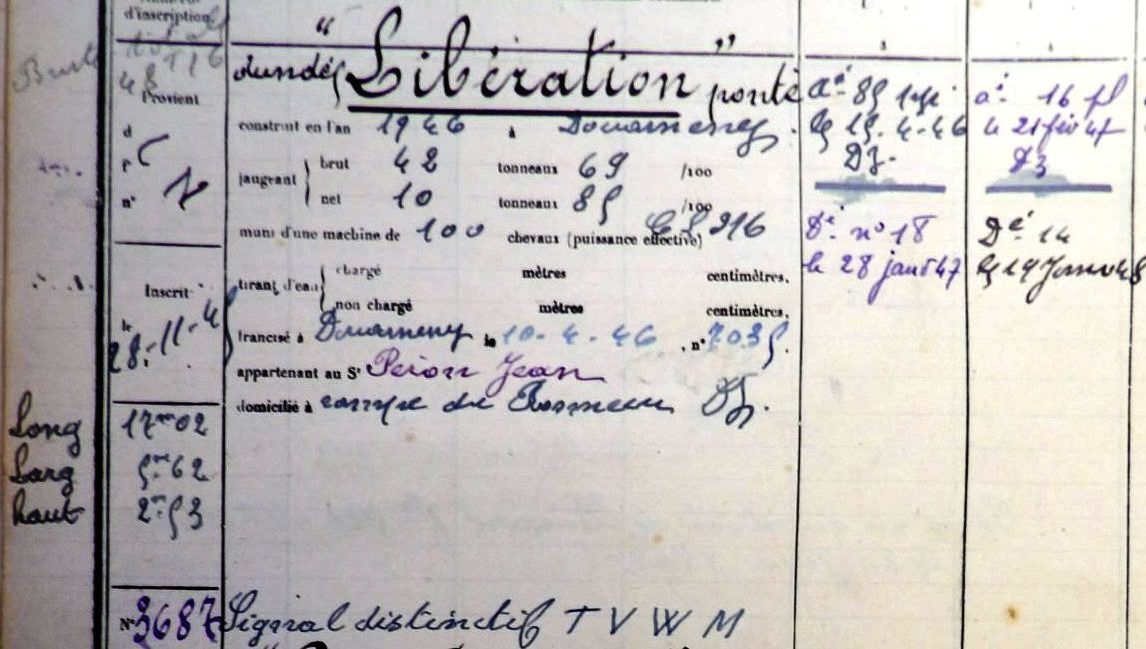 d'inscription
dundée "Libération" ponté
Provient
construit en l'an 1946 à Douarnenez.
jaugeant
brut 42 tonneaux 69 /100
net 10 tonneaux 85 /100
muni d'une machine de 100 chevaux (puissance effective) 216
tirant d'eau
chargé mètres centimètres.
non chargé mètres centimètres.
Inscrit
le
28-11-4
francisé à Douarnenez le 10-4-46, n° 7035.
appartenant au Sr Péron Jean
domicilié à rampe du Rosmeur Dz.
Long 17m02
Larg 5m62
haut 2m53
N° 3687 Signal distinctif T V W M
ac 85
le 15.4.46
DZ.
Dé n° 18
le 28 janv 47
ac 16
le 21 fév 47
DZ
Dé 14
le 19 Janv 48